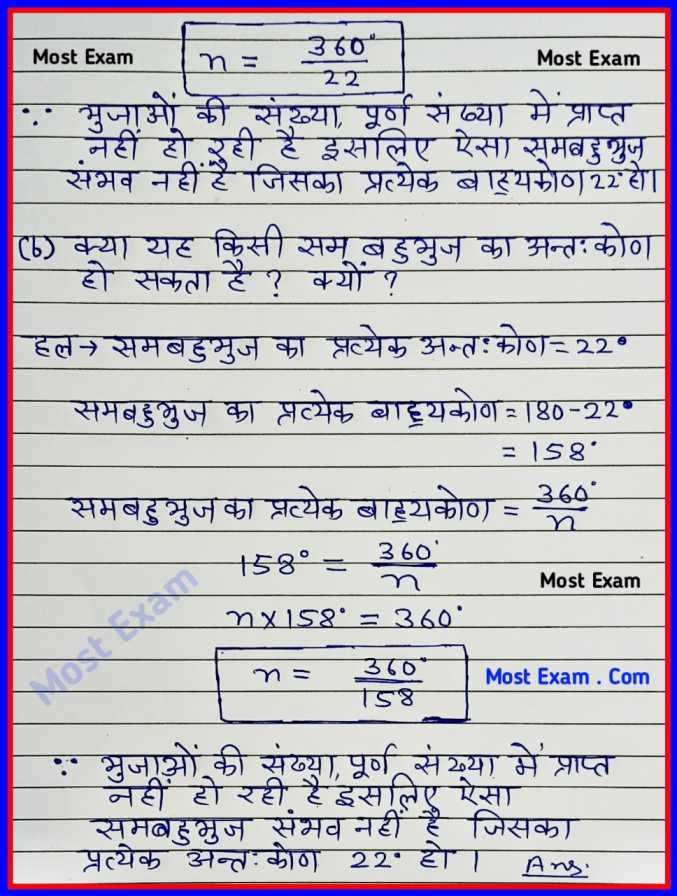 Most Exam n = 360° / 22 Most Exam
∵ भुजाओं की संख्या, पूर्ण संख्या में प्राप्त
नहीं हो रही है इसलिए ऐसा समबहुभुज
संभव नहीं है जिसका प्रत्येक बाह्यकोण 22° हो।
(b) क्या यह किसी सम बहुभुज का अन्तः कोण
हो सकता है ? क्यों ?
हल → समबहुभुज का प्रत्येक अन्तः कोण = 22°
समबहुभुज का प्रत्येक बाह्यकोण = 180 - 22°
= 158°
समबहुभुज का प्रत्येक बाह्यकोण = 360° / n
158° = 360° / n
Most Exam
n × 158° = 360°
Most Exam
n = 360° / 158
Most Exam . Com
∵ भुजाओं की संख्या, पूर्ण संख्या में प्राप्त
नहीं हो रही है इसलिए ऐसा
समबहुभुज संभव नहीं है जिसका
प्रत्येक अन्तः कोण 22° हो । Ans.